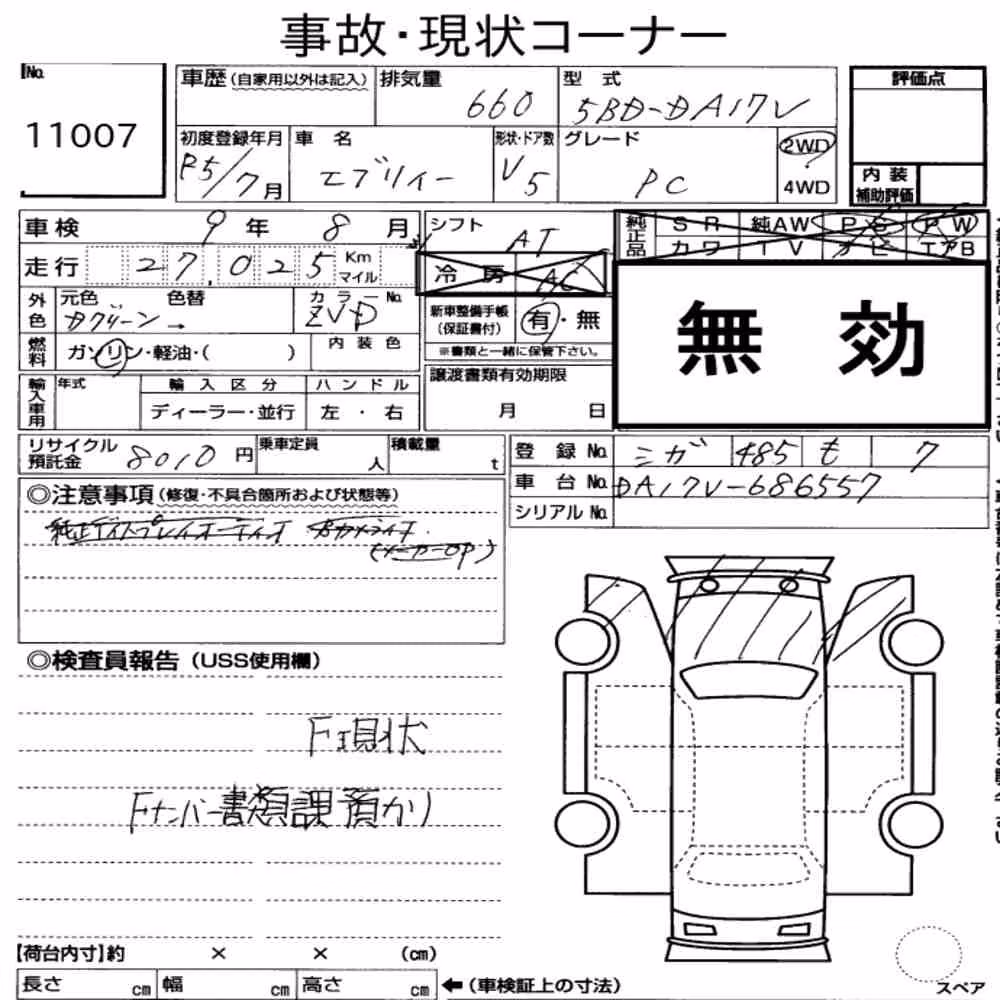 事故・現状コーナー
No. 11007
車歴(自家用以外は記入) 排気量 660 型式 5BD-DA17V 評価点
初度登録年月 R5/7月 車名 エブリィー 形状・ドア数 V5 グレード PC 2WD 4WD 内装補助評価
車検 9年 8月 シフト AT 純正品 SR 純AW PS PW
カワ TV ナビ エアB
走行 27,025 Km マイル 冷房 AC
外色 元色 色替 カラーNo. ZVD
新車整備手帳(保証書付) 有・無
無効
燃料 ガソリン・軽油・( ) 内装色
※書類と一緒に保管下さい。
輸入車用 年式 輸入区分 ハンドル
ディーラー・並行 左・右
譲渡書類有効期限
月 日
リサイクル預託金 8010円 乗車定員 人 積載量 t
登録No. 485 も 7
車台No. DA17V-686557
シリアルNo.
◎注意事項(修復・不具合箇所および状態等)
純正ディスプレイオーディオ
(メーカーOP)
◎検査員報告(USS使用欄)
F現状
Fナンバー書類課預かり
【荷台内寸】約 × × (cm)
長さ cm 幅 cm 高さ cm ←(車検証上の寸法)
スペア